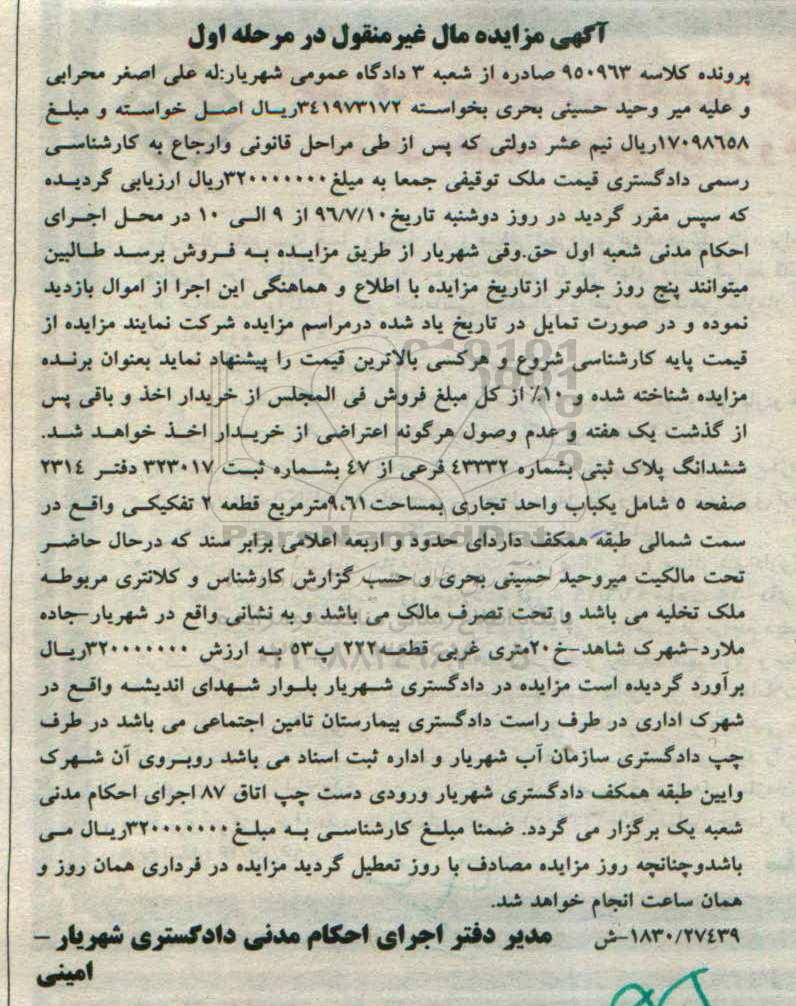 آگهی مزایده مال غیرمنقول در مرحله اول
پرونده کلاسه ۹۵۰۹۶۳ صادره از شعبه ۳ دادگاه عمومی شهریار:له علی اصغر محرابی
و علیه میر وحید حسینی بحری بخواسته ۳٤۱۹۷۳۱۷۲ریال اصل خواسته و مبلغ
۱۷۰۹۸٦۵۸ریال نیم عشر دولتی که پس از طی مراحل قانونی وارجاع به کارشناسی
رسمی دادگستری قیمت ملک توقیفی جمعا به میلغ۳۲۰۰۰۰۰۰۰ریال ارزیابی گردیده
که سپس مقرر گردید در روز دوشنبه تاریخ۹٦/۷/۱۰ از ۹ الی ۱۰ در محل اجرای
احکام مدنی شعبه اول حق.وقی شهریار از طریق مزایده به فروش برسد طالبین
میتوانند پنج روز جلوتر ازتاریخ مزایده با اطلاع و هماهنگی این اجرا از اموال بازدید
نموده و در صورت تمایل در تاریخ یاد شده درمراسم مزایده شرکت نمایند مزایده از
قیمت پایه کارشناسی شروع و هرکسی بالاترین قیمت را پیشنهاد نماید بعنوان برنده
مزایده شناخته شده و ۱۰٪ از کل مبلغ فروش فی المجلس از خریدار اخذ و باقی پس
از گذشت یک هفته و عدم وصول هرگونه اعتراضی از خریدار اخذ خواهد شد.
ششدانگ پلاک ثبتی بشماره ٤۳۳۳۲ فرعی از ٤۷ بشماره ثبت ۳۲۳۰۱۷ دفتر ۲۳۱٤
صفحه ۵ شامل یکباب واحد تجاری بمساحت۹،٦۱مترمربع قطعه ۲ تفکیکی واقع در
سمت شمالی طبقه همکف داردای حدود و اربعه اعلامی برابر سند که درحال حاضر
تحت مالکیت میروحید حسینی بحری و حسب گزارش کارشناس و کلانتری مربوطه
ملک تخلیه می باشد و تحت تصرف مالک می باشد و به نشانی واقع در شهریار-جاده
ملارد-شهرک شاهد-خ۲۰متری غربی قطعه۲۲۲ پ۵۳ به ارزش ۳۲۰۰۰۰۰۰۰ریال
برآورد گردیده است مزایده در دادگستری شهریار بلوار شهدای اندیشه واقع در
شهرک اداری در طرف راست دادگستری بیمارستان تامین اجتماعی می باشد در طرف
چپ دادگستری سازمان آب شهریار و اداره ثبت اسناد می باشد روبروی آن شهرک
وایین طبقه همکف دادگستری شهریار ورودی دست چپ اتاق ۸۷ اجرای احکام مدنی
شعبه یک برگزار می گردد. ضمنا مبلغ کارشناسی به مبلغ۳۲۰۰۰۰۰۰۰ریال می
باشدوچنانچه روز مزایده مصادف با روز تعطیل گردید مزایده در فرداری همان روز و
همان ساعت انجام خواهد شد.
۱۸۳۰/۲۷٤۳۹-ش مدیر دفتر اجرای احکام مدنی دادگستری شهریار –
امینی
ParsNamadData